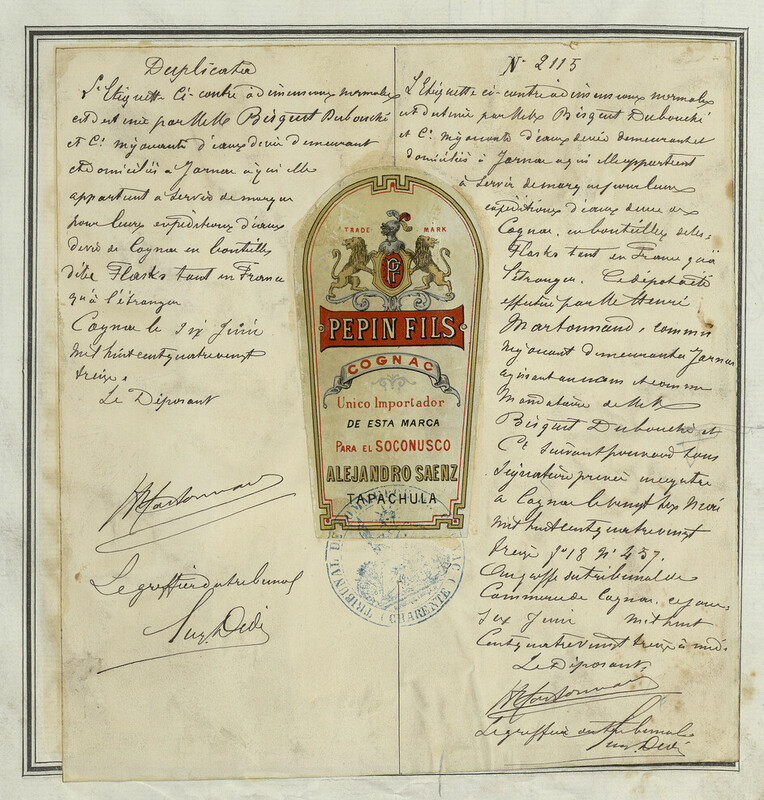 Duplicata
L'Etiquette Ci-contre à dimensions normales
est destinée par MM Bisquit Dubouché
et Cie négociants d'eaux de vie demeurant
et domiciliés à Jarnac à qui elle
appartient à servir de marque
pour leurs expéditions d'eaux
de vie de Cognac en bouteilles
dites Flasks tant en France
qu'à l'étranger
Cognac le six Juin
mil huit cent quatre vingt
treize.
Le Déposant
Le greffier du tribunal
TRADE MARK
PEPIN FILS
COGNAC
Unico Importador
DE ESTA MARCA
PARA EL SOCONUSCO
ALEJANDRO SAENZ
TAPACHULA
TRIBUNAL DE COMMERCE
(CHARENTE)
N° 2115
L'Etiquette ci-contre à dimensions normales
est destinée par MM Bisquit Dubouché
et Cie négociants d'eaux de vie demeurant et
domiciliés à Jarnac à qui elle appartient
à servir de marque pour leurs
expéditions d'eaux de vie de
Cognac, en bouteilles dites
Flasks tant en France qu'à
l'étranger. Ce dépôt a été
effectué par M Henri
commis
négociant demeurant à Jarnac
agissant au nom et comme
Mandataire de MM
Bisquit Dubouché et
Cie suivant pouvoir sous
signature privée enregistré
à Cognac le vingt six Mai
mil huit cent quatre vingt
treize f° 18 N° 457.
Au greffe du tribunal de
Commerce de Cognac, ce jour,
six Juin mil huit
Cent quatre vingt treize à midi
Le Déposant.
Le greffier du tribunal